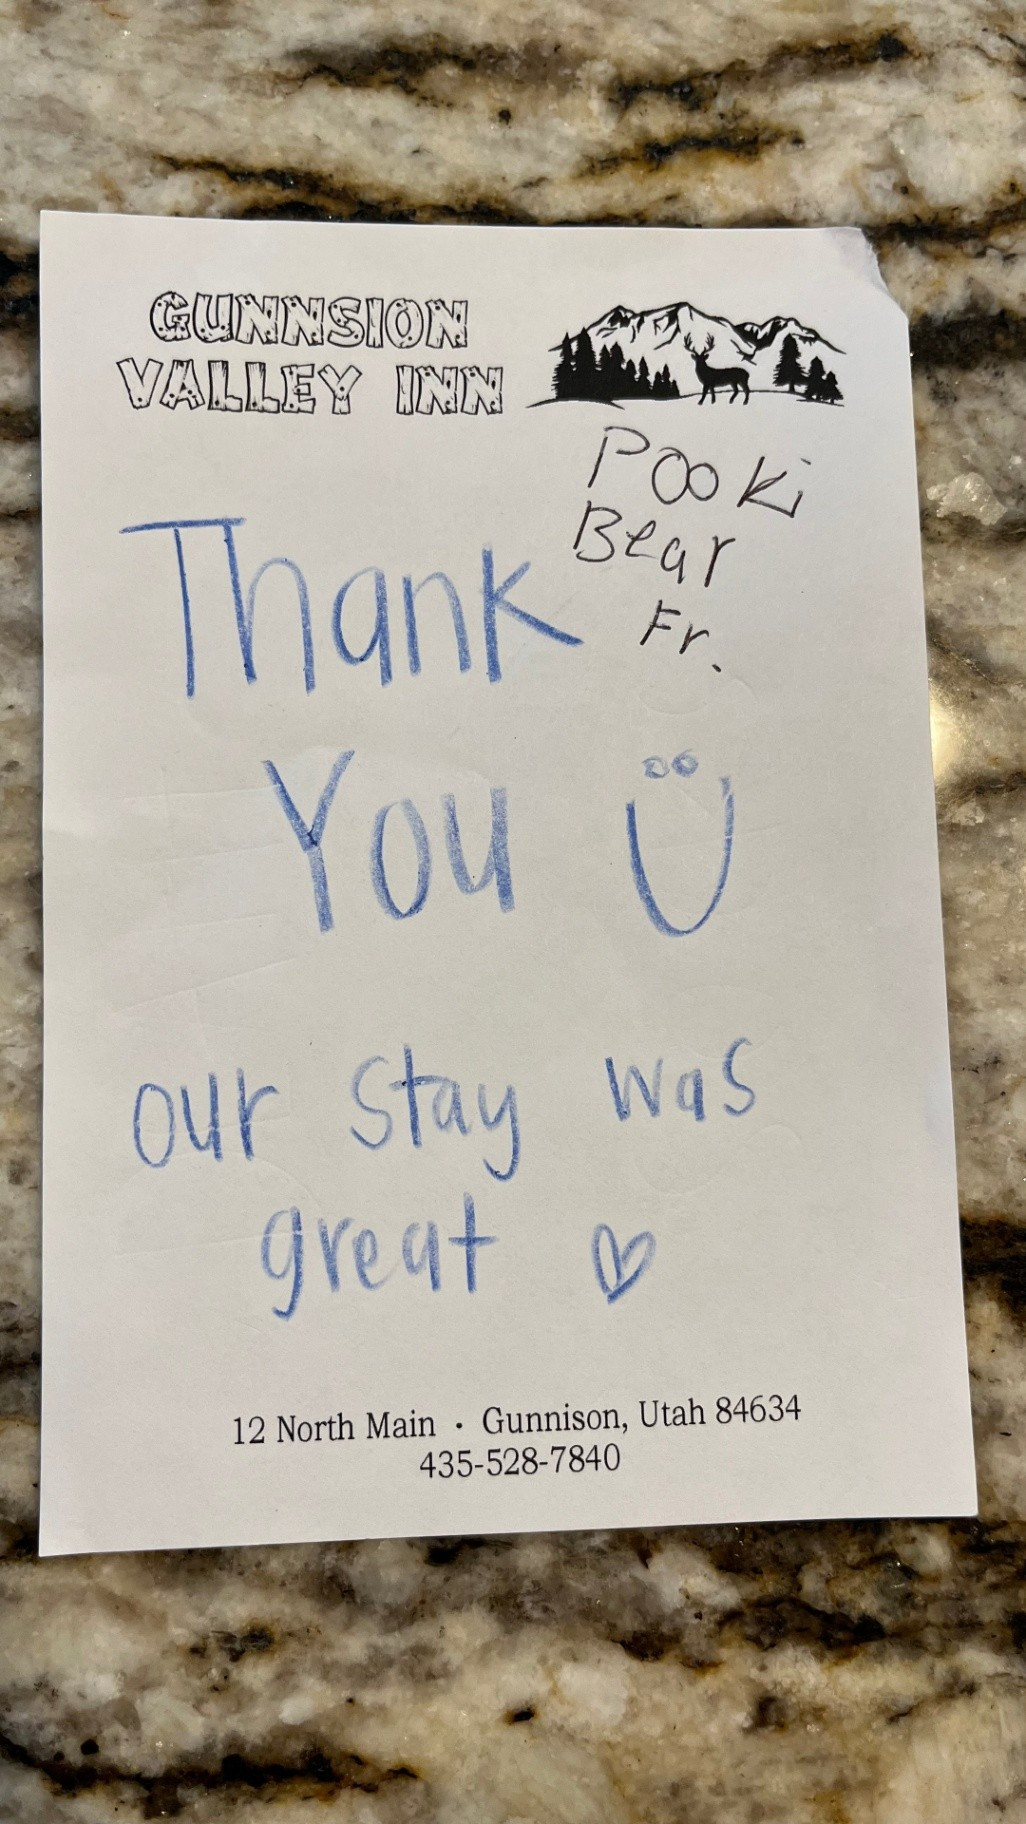 GUNNSION
VALLEY INN
Pooki
Bear
Fr.
Thank
You
our stay was
great
12 North Main · Gunnison, Utah 84634
435-528-7840